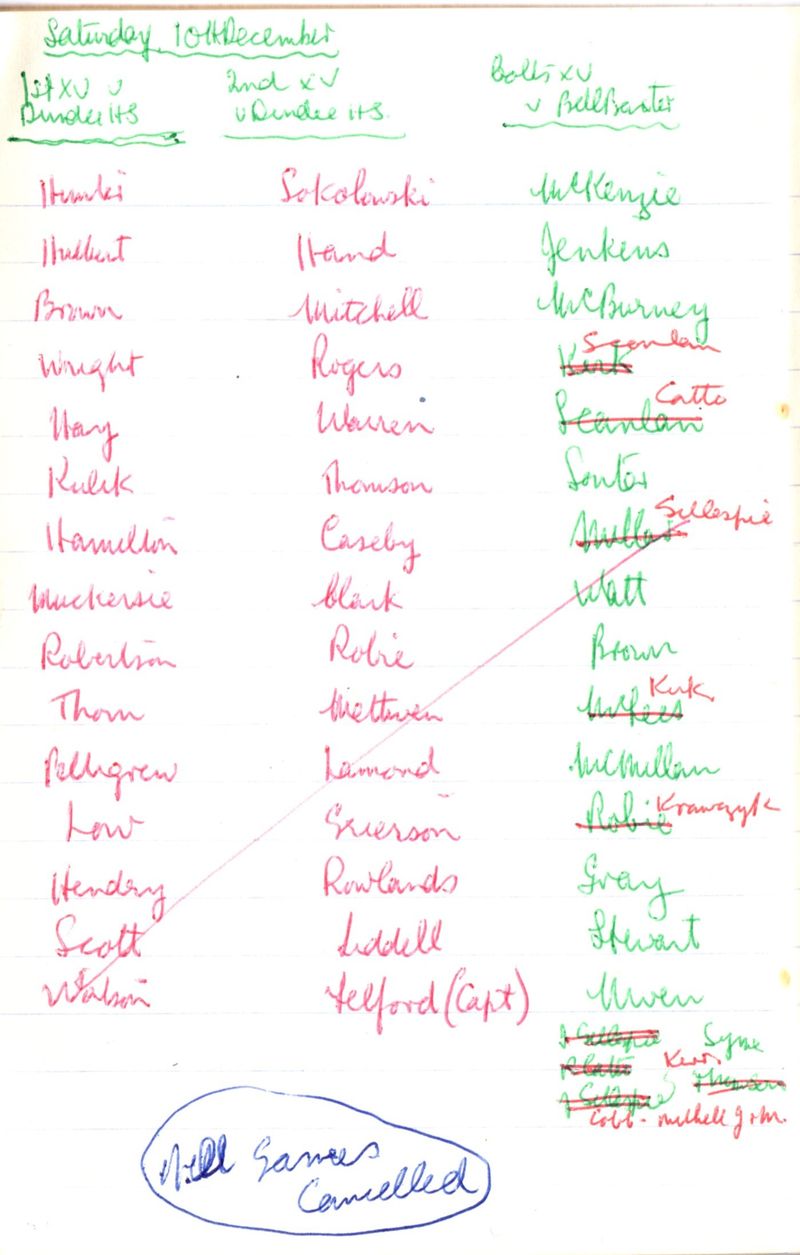 Saturday 10th December
1st XV v
Dundee HS
2nd XV
v Dundee HS.
Colts XV
v Bell Baxter
Hulbert
Brown
Wright
Hay
Kulik
Hamilton
Muckersie
Robertson
Thom
Pellegrew
Low
Hendry
Scott
Watson
Sokolowski
Hand
Mitchell
Rogers
Warren
Thomson
Caseby
Clark
Robie
Methven
Lamond
Grierson
Rowlands
Liddell
Telford (Capt)
McKenzie
Jenkens
McBurney
Kirk Scanlan
Scanlan Catto
Souter
Millar Gillespie
Watt
Brown
McLees Kirk
McMillan
Robie Krawczyk
Gray
Stewart
Gillespie Syme
Catto Kerr Thomson
Gillespie
Cobb - Mitchell J + M.
All Games
Cancelled